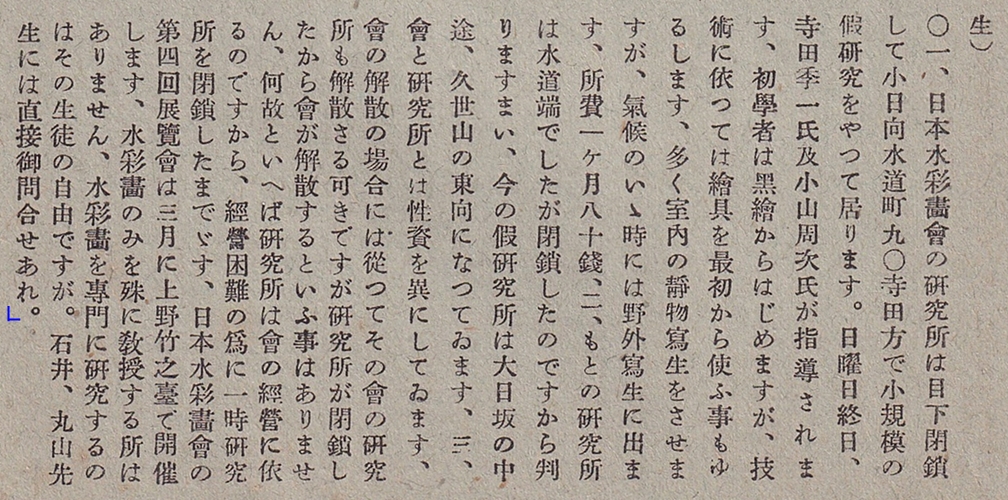 生）
〇一、日本水彩畵會の研究所は目下閉鎖
して小日向水道町九〇寺田方で小規模の
假研究をやつて居ります。日曜日終日、
寺田季一氏及小山周次氏が指導されま
す、初學者は黑繪からはじめますが、技
術に依つては繪具を最初から使ふ事もゆ
るします、多く室內の靜物寫生をさせま
すが、氣候のいゝ時には野外寫生に出ま
す、所費一ヶ月八十錢、二、もとの研究所
は水道端でしたが閉鎖したのですから判
りますまい、今の假研究所は大日坂の中
途、久世山の東向になつてゐます、三、
會と研究所とは性資を異にしてゐます、
會の解散の場合には從つてその會の研究
所も解散さる可きですが研究所が閉鎖し
たから會が解散するといふ事はありませ
ん、何故といへば研究所は會の經營に依
るのですから、經營困難の爲に一時研究
所を閉鎖したまでゞす、日本水彩畵會の
第四回展覽會は三月に上野竹之臺で開催
します、水彩畵のみを殊に敎授する所は
ありません、水彩畵を專門に研究するの
はその生徒の自由ですが。石井、丸山先
生には直接御問合せあれ。